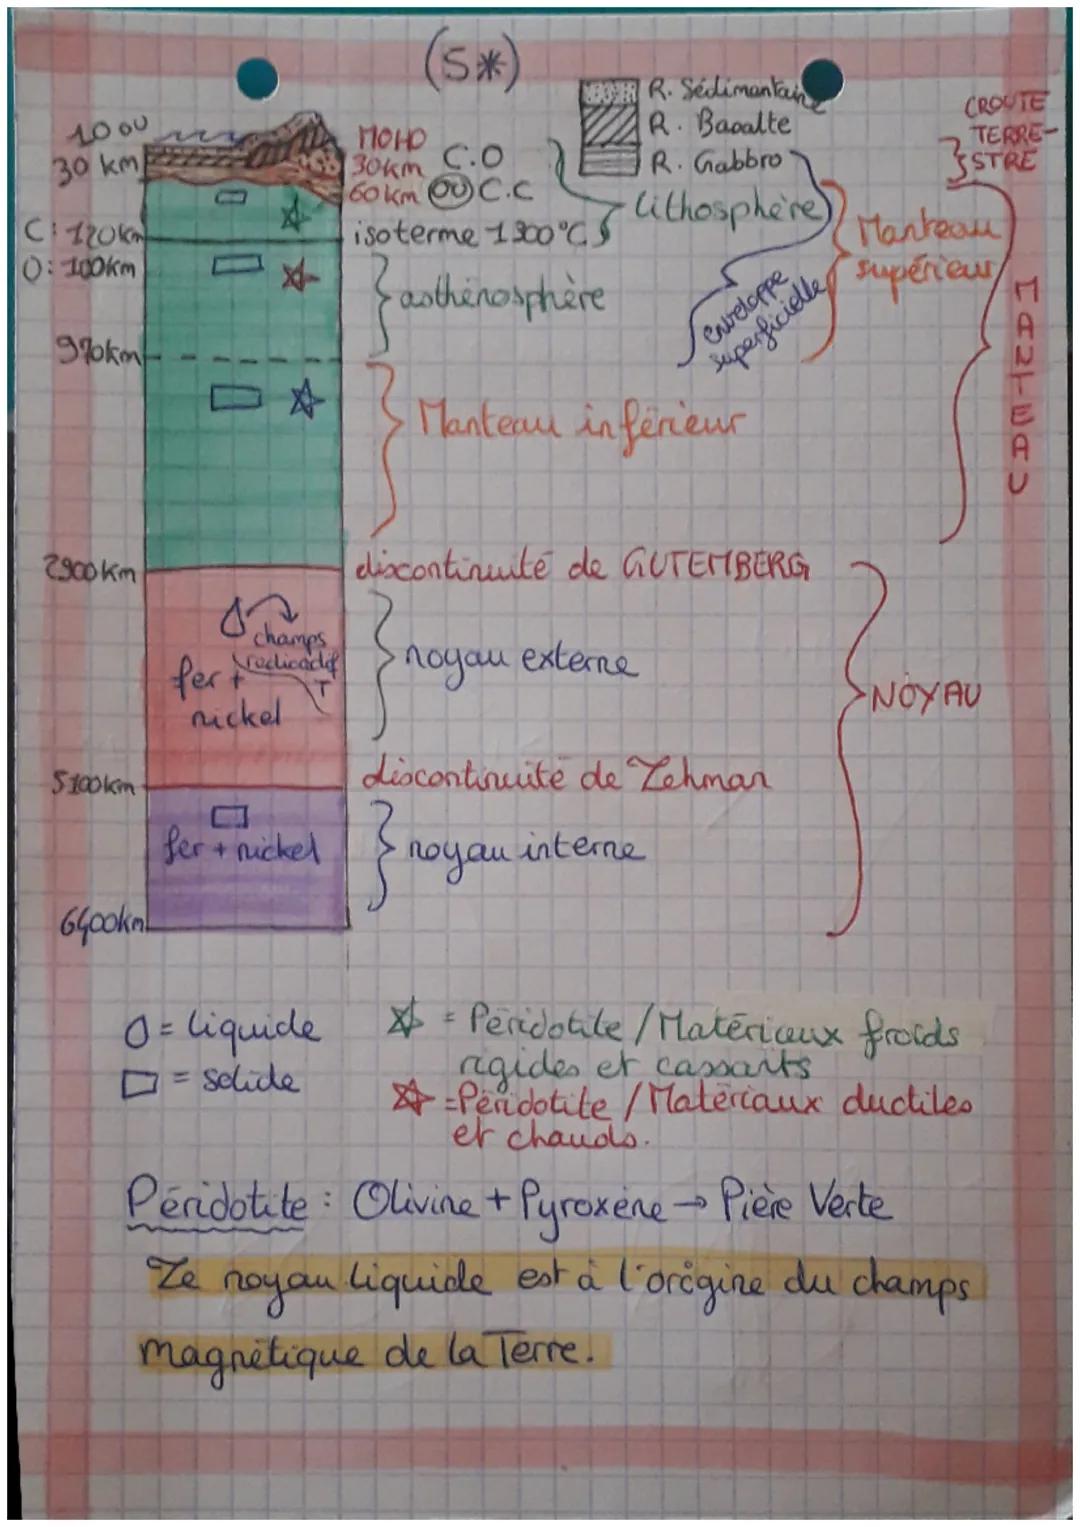 (S*)
R. Sédimentaire
R. Basalte
R. Gabbro
CROUTE
TERRE-
STRE
10 ou
30 km
MOHO
30km C.O
60km OU C.C
lithosphère
C: 120km
isoterme 1300°C
O: 100km
asthénosphère
enveloppe
superficielle
Manteau
supérieur
MANTEAU
970km
Manteau inférieur
2900km
discontinuité de GUTEMBERG
champs
fer +
nickel
T
noyau externe
NOYAU
5100km
discontinuité de Lehman
fer + nickel
noyau interne
6400km
= liquide
= solide
= Péridotite / Matériaux froids
rigides et cassants
= Péridotite / Matériaux ductiles
et chauds.
Péridotite : Olivine + Pyroxène → Pière Verte
Le noyau liquide est à l'origine du champs
magnétique de la Terre.